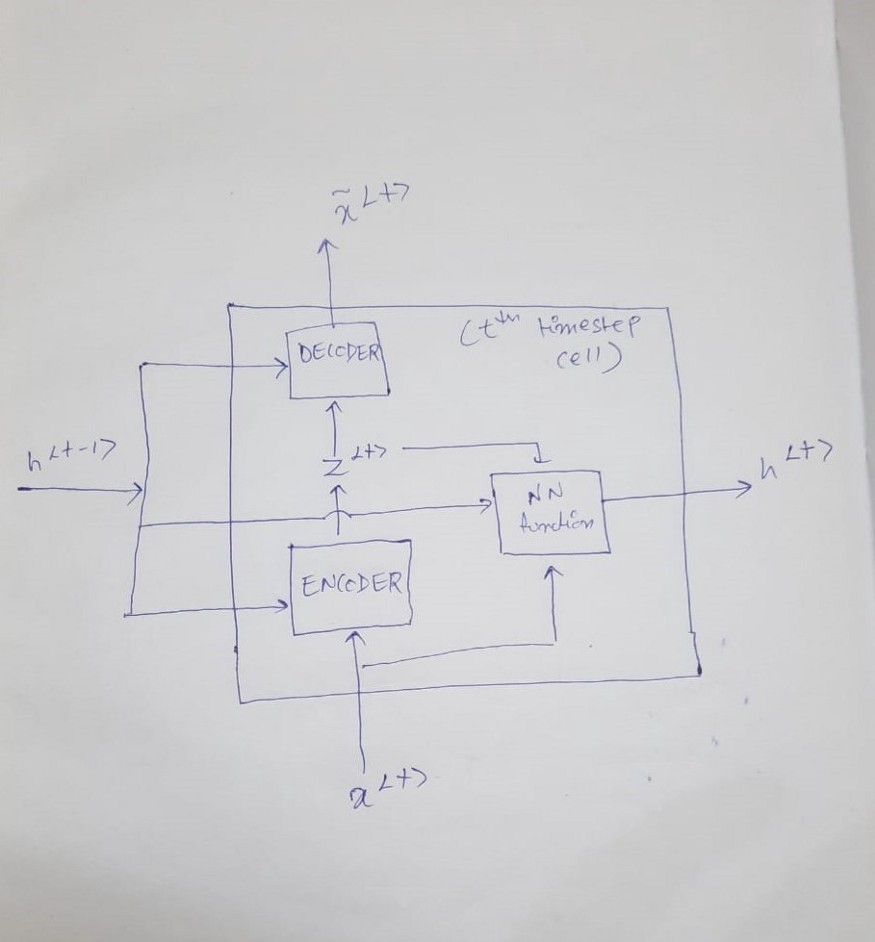 x̃<t>
(tth timestep
cell)
DECODER
h<t-1>
z<t>
h<t>
NN
function
ENCODER
x<t>